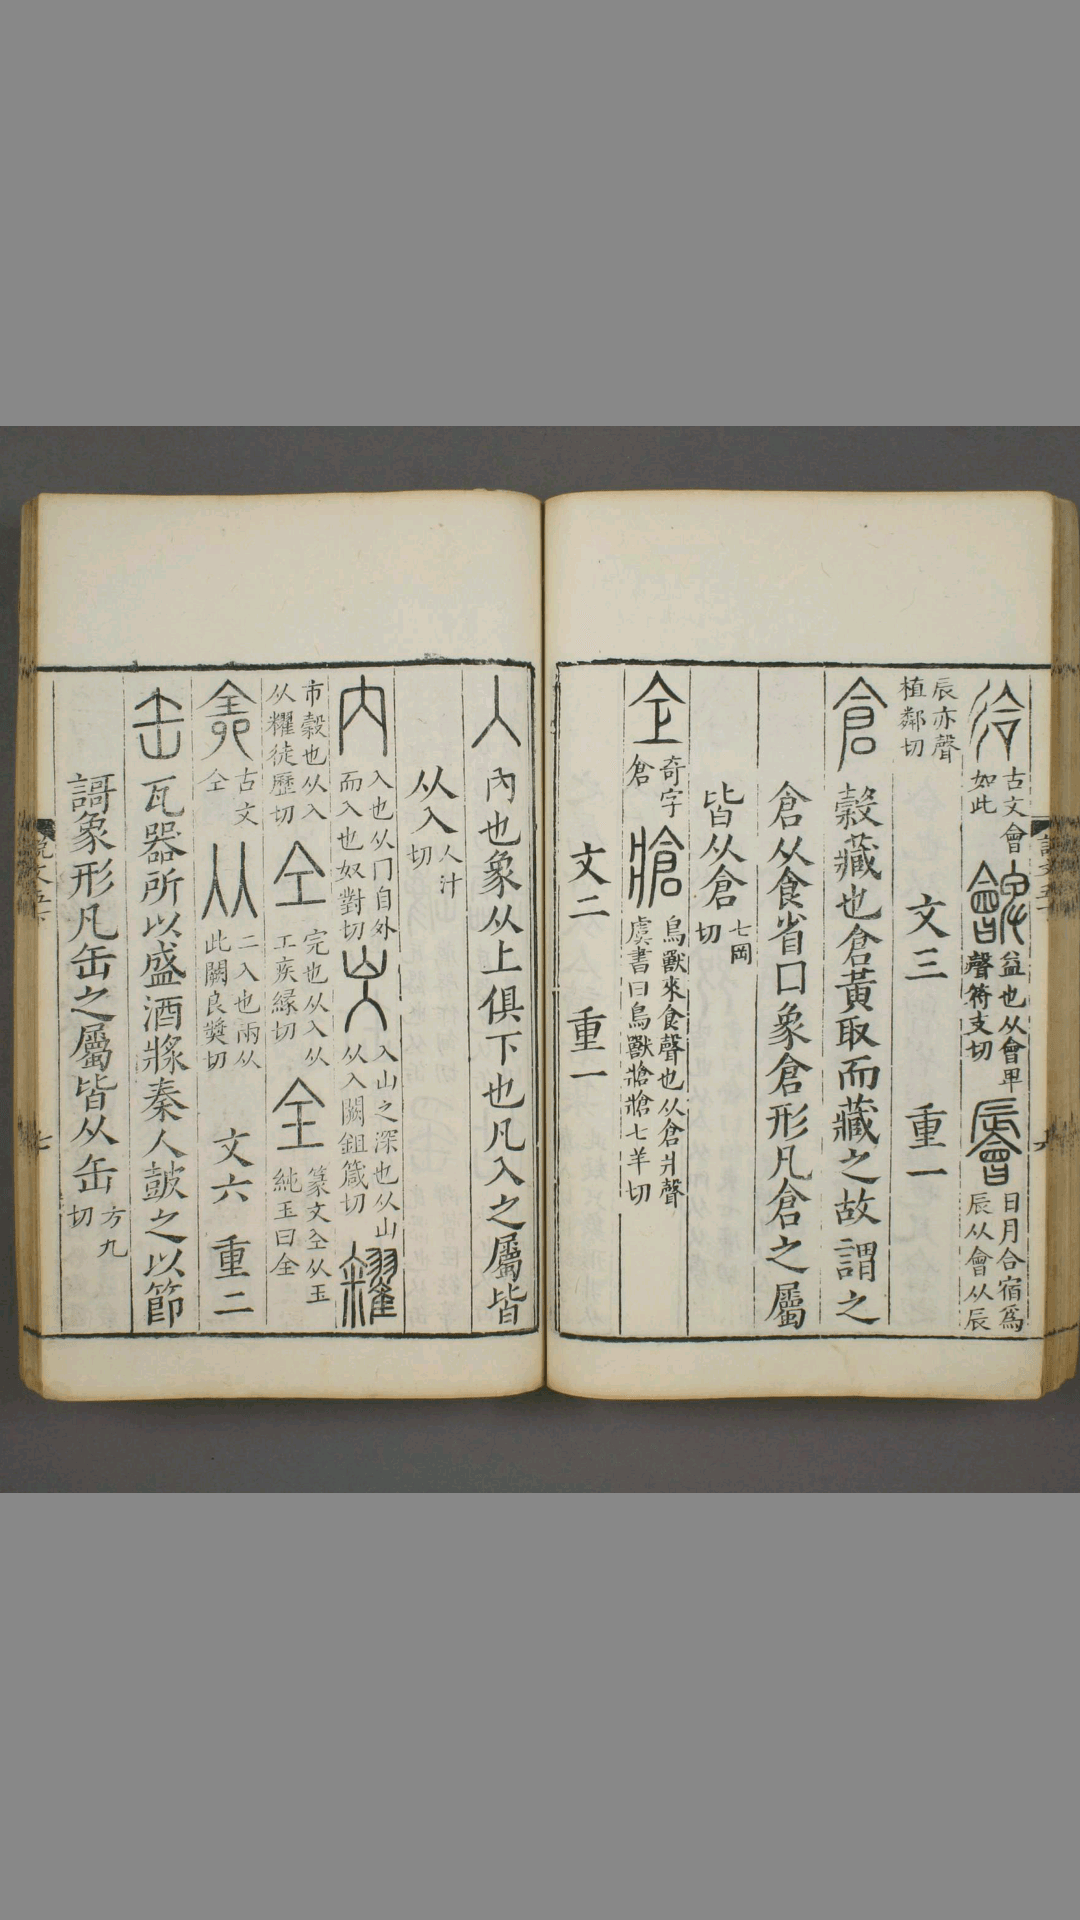 㣛古文會如此䯤益也从會卑聲符支切䢈日月合宿爲辰从會从辰
辰亦聲植鄰切 文三 重一
倉穀藏也倉黃取而藏之故謂之
倉从食省口象倉形凡倉之屬
皆从倉七岡切
仺奇字倉牄鳥獸來食聲也从倉爿聲虞書曰鳥獸牄牄七羊切
文二 重一
入內也象从上俱下也凡入之屬皆
从入人汁切
內入也从冂自外而入也奴對切㞥入山之深也从山从入闕鉏箴切糴
市穀也从入从䊮徒歷切仝完也从入从工疾緣切全篆文仝从玉純玉曰全
𠓴古文仝从二入也兩从此闕良奬切 文六 重二
缶瓦器所以盛酒漿秦人鼓之以節
謌象形凡缶之屬皆从缶方九切
說文五下
七